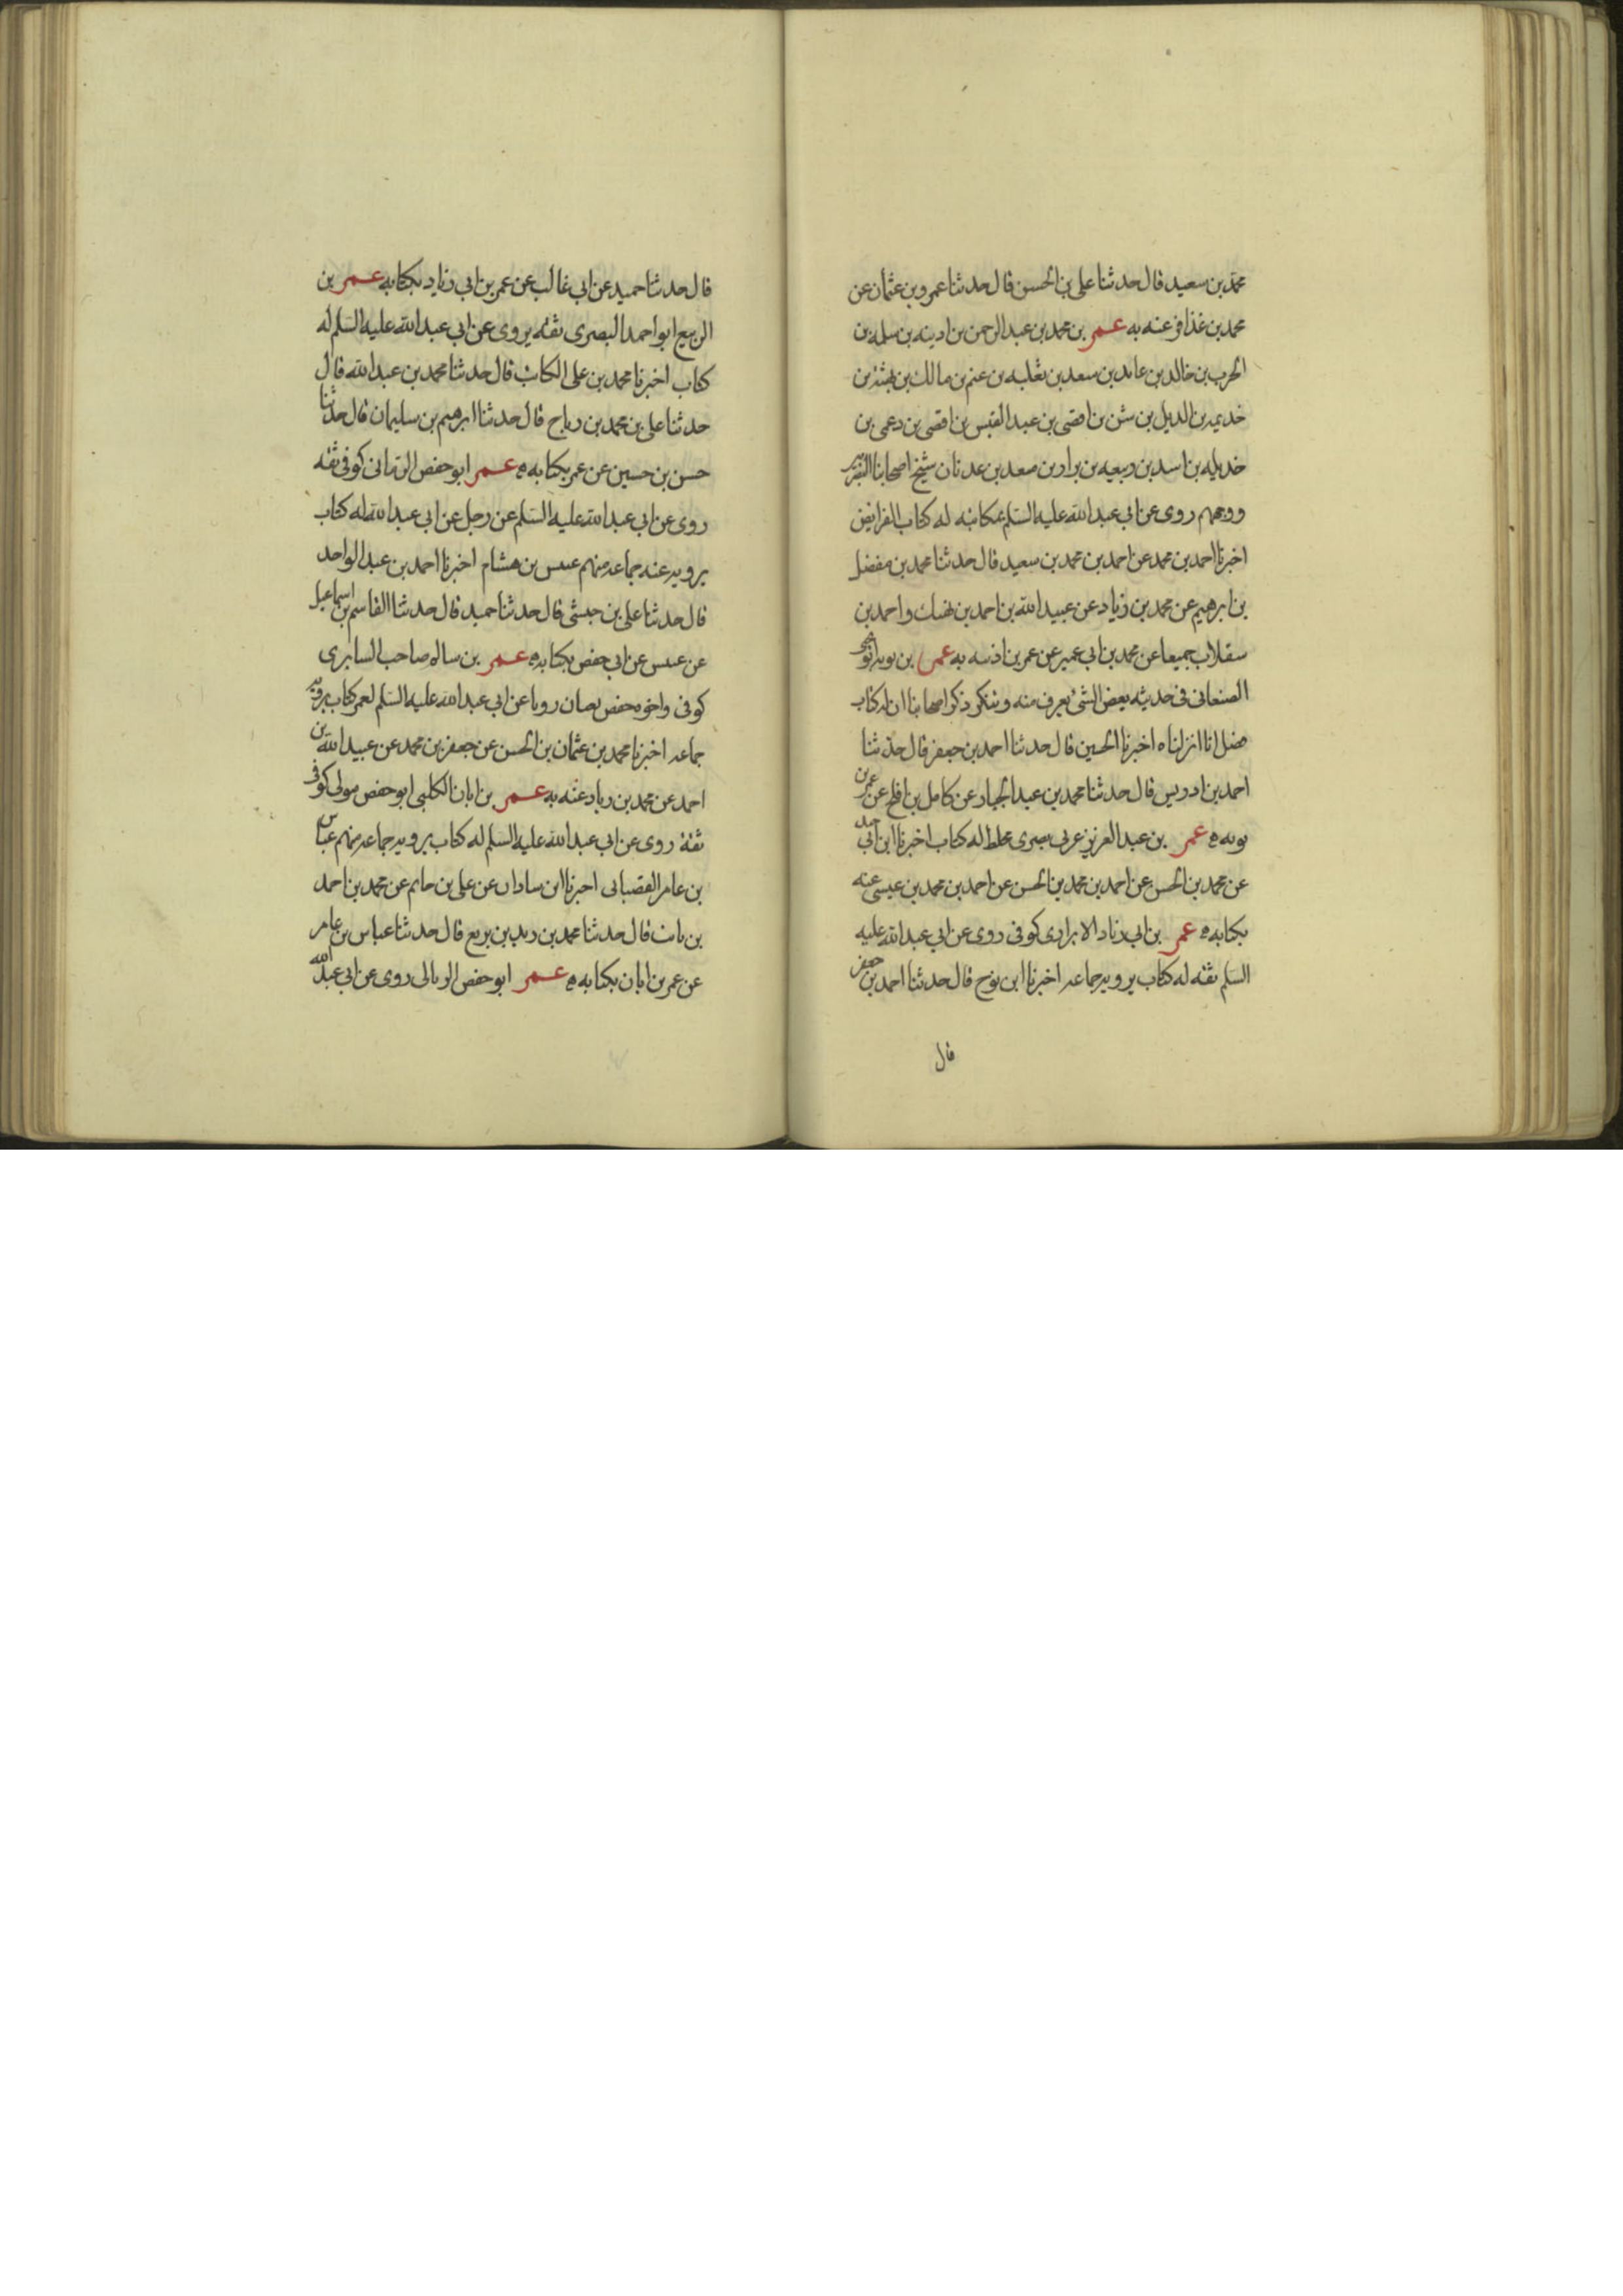 محمد بن سعيد قال حدثنا على بن الحسن قال حدثنا عمرو بن عثمان عن
محمد بن عذافر عنه به عمر بن محمد بن عبد الرحمن بن اذينه بن سلمه بن
الحرث بن خالد بن عايد بن سعد بن ثعلبه بن غنم بن مالك بن بهثه بن
خديمه بن الديل بن شن بن افصى بن عبد القيس بن افصى بن دعمى بن
خديله بن اسد بن ربيعه بن نزار بن معد بن عدنان شيخ اصحابنا البصريين
ووجههم روى عن ابى عبد الله عليه السلم بمكاتبه له كتاب الفرايض
اخبرنا احمد بن محمد عن احمد بن محمد بن سعيد قال حدثنا محمد بن مفضل
بن ابرهيم عن محمد بن زياد عن عبيد الله بن احمد بن نهيك واحمد بن
سقلاب جميعا عن محمد بن ابى عمير عن عمر بن اذينه به عمر بن توبه ابو يحيى
الصنعانى فى حديثه بعض الشئ يعرف منه وينكر ذكر اصحابنا ان له كتاب
فضل انا انزلناه اخبرنا الحسين قال حدثنا احمد بن جعفر قال حدثنا
احمد بن ادريس قال حدثنا محمد بن عبد الجبار عن كامل بن افلح عن عمر بن
توبه ه عمر بن عبد العزيز عربى بصرى مخلط له كتاب اخبرنا ابن ابى جيد
عن محمد بن الحسن عن احمد بن محمد بن الحسن عن احمد بن محمد بن عيسى عنه
بكتابه ه عمر بن ابى زياد الابزارى كوفى روى عن ابى عبد الله عليه
السلم ثقه له كتاب يرويه جماعه اخبرنا ابن نوح قال حدثنا احمد بن جعفر
قال
قال حدثنا حميد عن ابى غالب عن عمر بن ابى زياد بكتابه عمر بن
الربيع ابو احمد البصرى ثقه يروى عن ابى عبد الله عليه السلم له
كتاب اخبرنا محمد بن على الكاتب قال حدثنا محمد بن عبد الله قال
حدثنا على بن محمد بن رباح قال حدثنا ابرهيم بن سليمان قال حدثنا
حسن بن حسين عن عمر بكتابه ه عمر ابو حفص الرمانى كوفى ثقه
روى عن ابى عبد الله عليه السلم عن رجل عن ابى عبد الله له كتاب
يرويه عنه جماعه منهم عبيس بن هشام اخبرنا احمد بن عبد الواحد
قال حدثنا على بن حبشى قال حدثنا حميد قال حدثنا القاسم بن اسماعيل
عن عبيس عن ابى حفص بكتابه ه عمر بن سالم صاحب السابرى
كوفى واخوه حفص ثقتان رويا عن ابى عبد الله عليه السلم لعمر كتاب يرويه
جماعه اخبرنا محمد بن عثمان بن الحسن عن جعفر بن محمد عن عبيد الله بن
احمد عن محمد بن زياد عنه به عمر بن ابان الكلبى ابو حفص مولى كوفى
ثقة روى عن ابى عبد الله عليه السلم له كتاب يرويه جماعه منهم عباس
بن عامر القصبانى اخبرنا ابن شاذان عن على بن حاتم عن محمد بن احمد
بن ثابت قال حدثنا محمد بن بن بزيع قال حدثنا عباس بن عامر
عن عمر بن ابان بكتابه ه عمر ابو حفص الزبالى روى عن ابى عبد الله